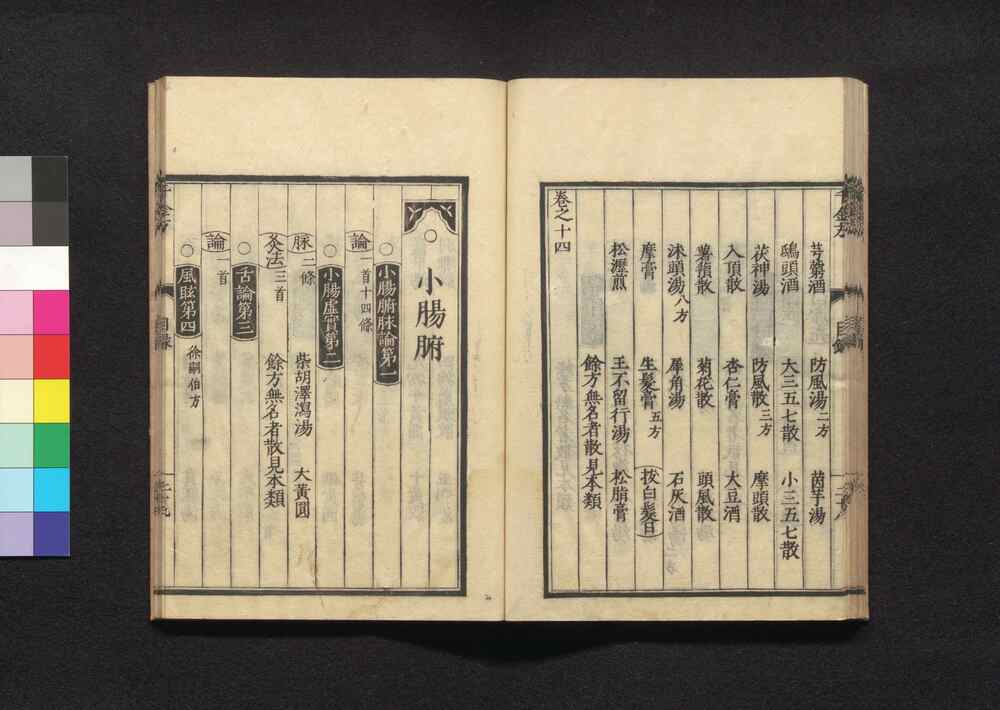 芎藭酒　防風湯二方　茵芋湯
鴟頭酒　大三五七散　小三五七散
茯神湯　防風散三方　摩頭散
入頂散　杏仁膏　大豆酒
薯蕷散　菊花散　頭風散
沐頭湯八方　犀角湯　石灰酒
摩膏　生髮膏五方　按白髮日
松瀝煎　王不留行湯　松脂膏
餘方無名者散見本類
卷之十四
小腸腑
小腸腑脉論第一
論一首十四條
小腸虛實第二
脉二條　柴胡澤瀉湯　大黃圓
灸法三首　餘方無名者散見本類
舌論第三
論一首
風眩第四　徐嗣伯方